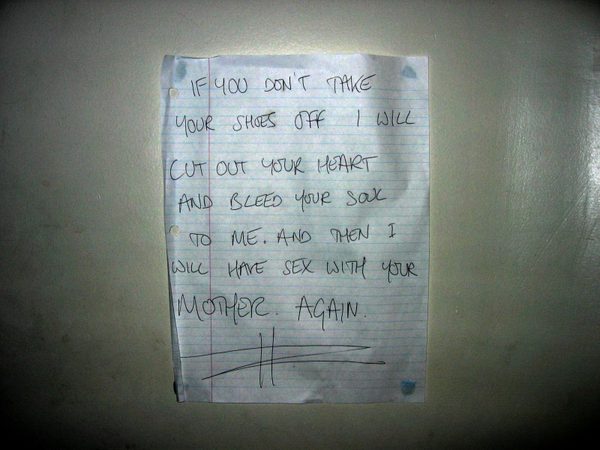 IF YOU DON'T TAKE
YOUR SHOES OFF I WILL
CUT OUT YOUR HEART
AND BLEED YOUR SOUL
TO ME. AND THEN I
WILL HAVE SEX WITH YOUR
MOTHER. AGAIN.